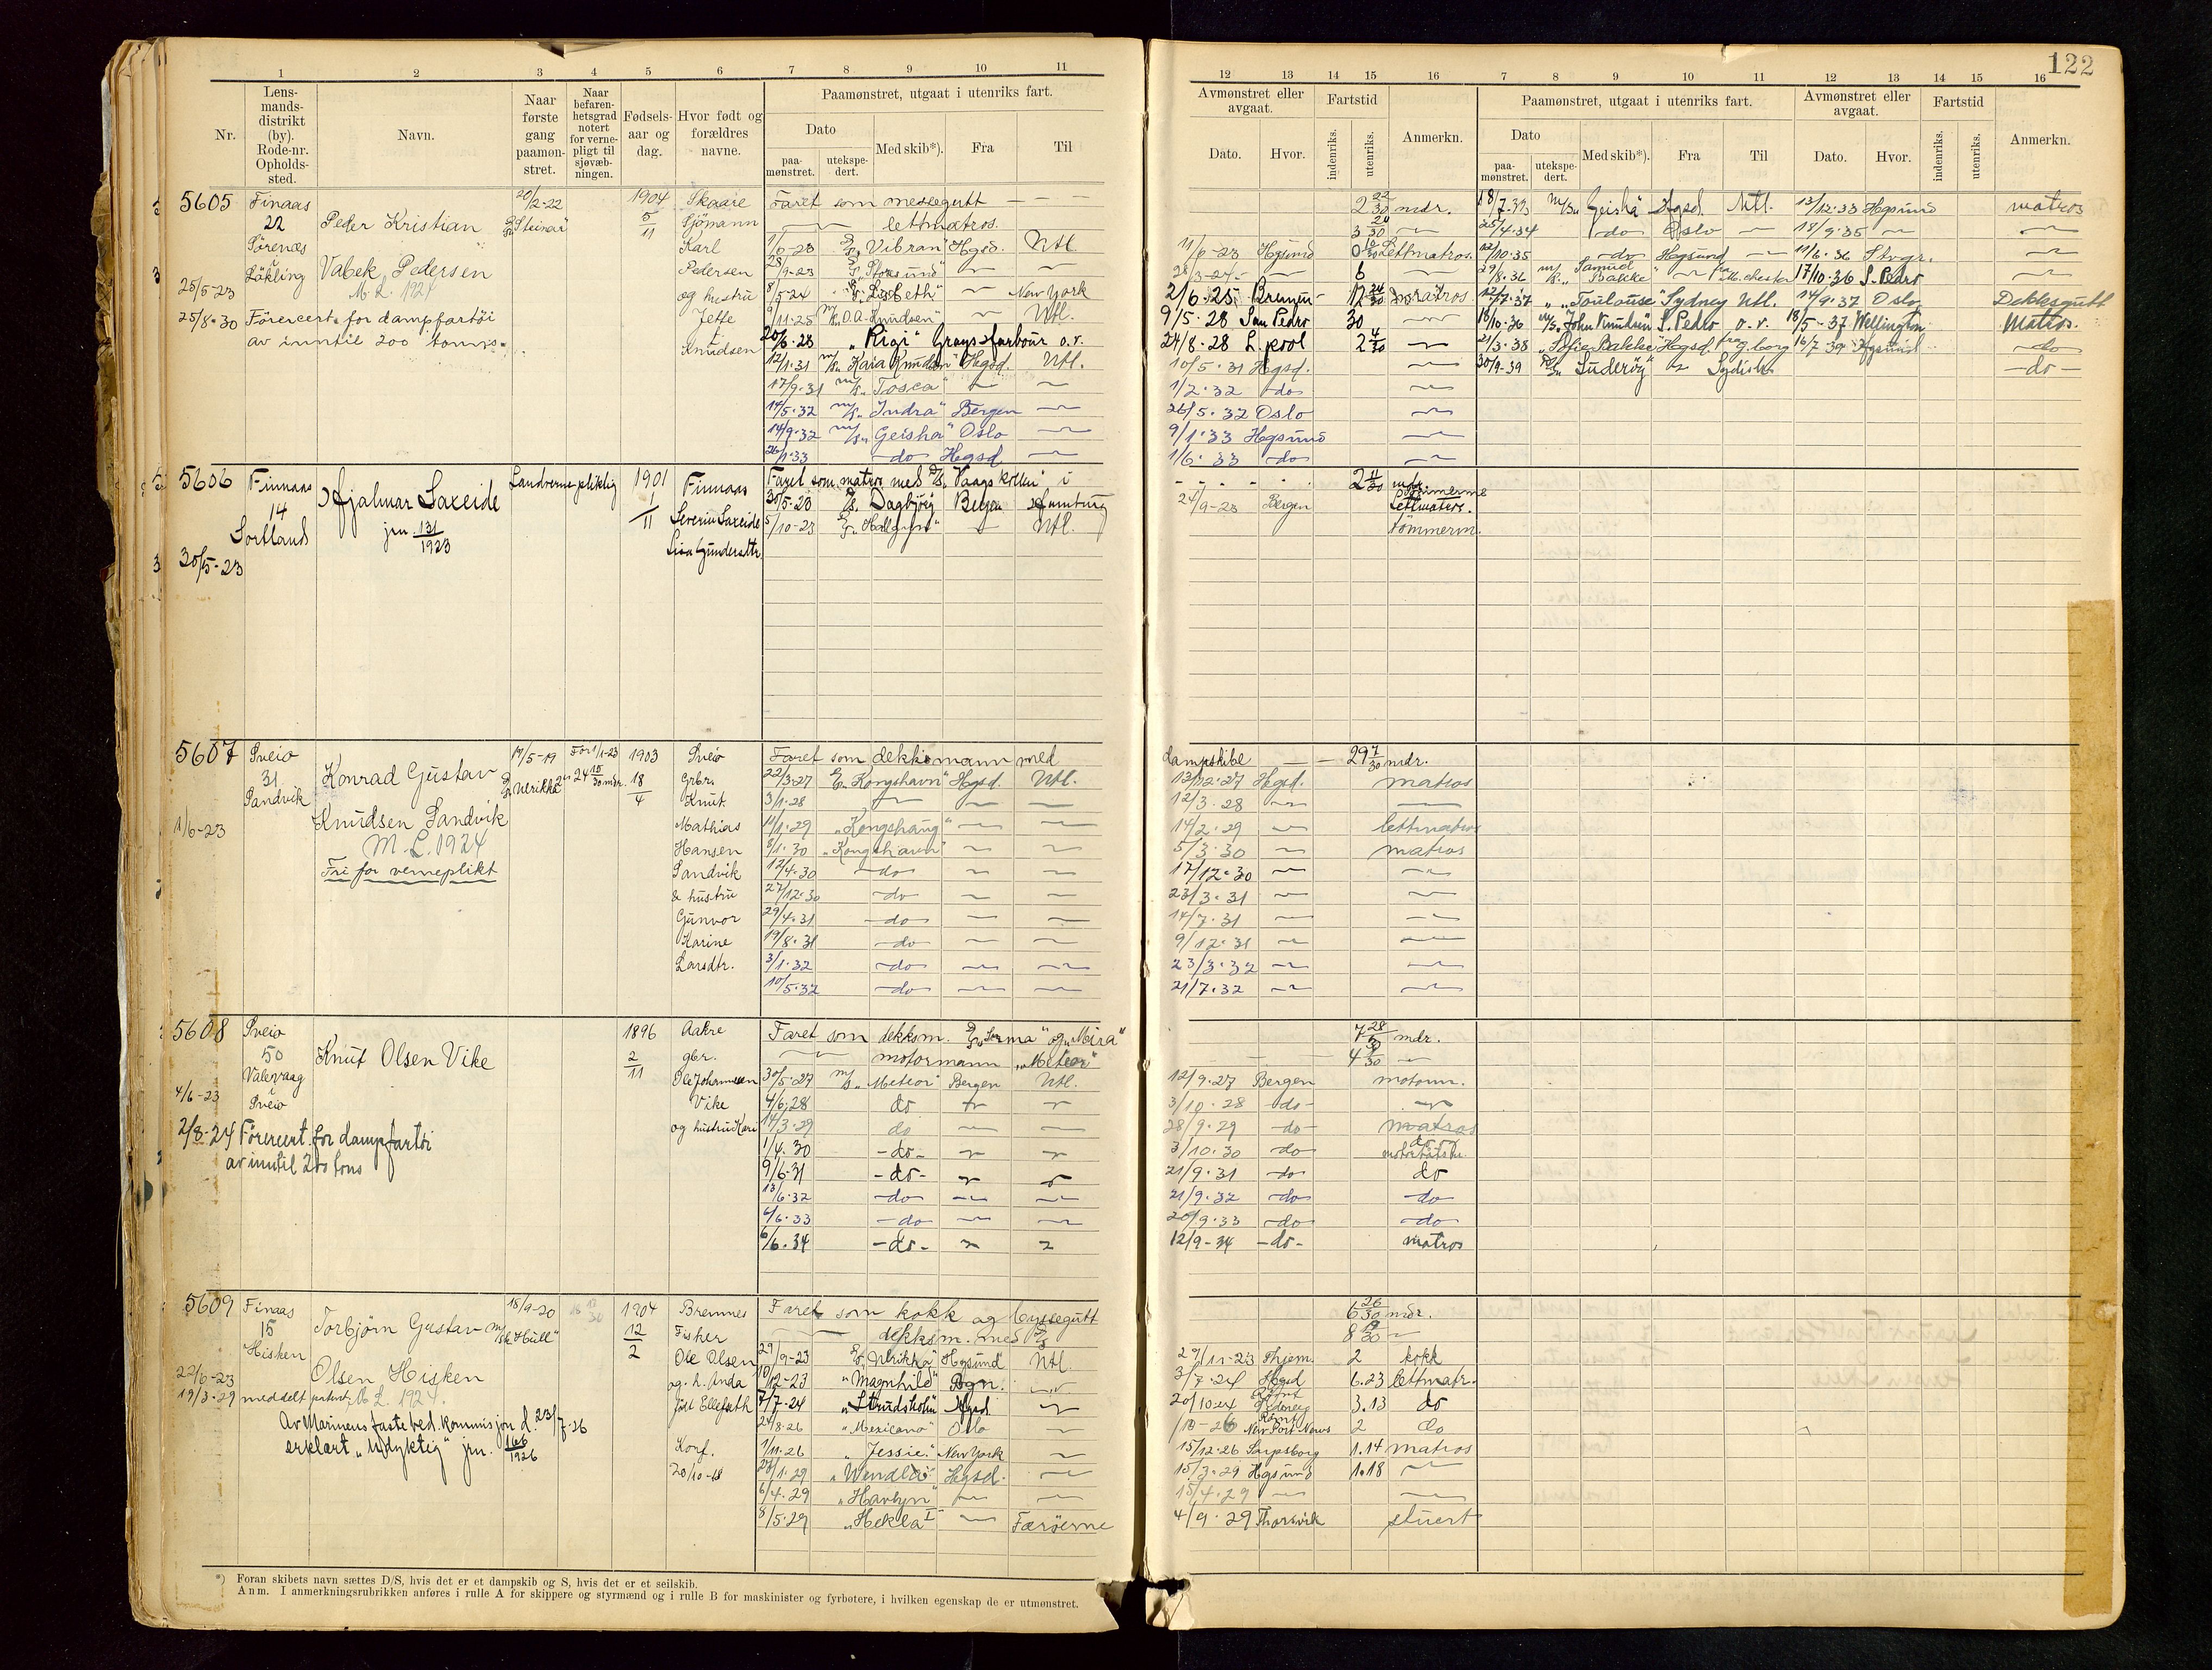 122
1 2 3 4 5 6 7 8 9 10 11
Nr.
Lensmandsdistrikt (by). Rode-nr. Opholdssted.
Navn.
Naar første gang paamønstret.
Naar befarenhetsgrad notert for vernepligt til sjøvæbningen.
Fødselsaar og dag.
Hvor født og forældres navne.
Paamønstret, utgaat i utenriks fart.
Dato
paamønstret.
utekspedert.
Med skib*).
Fra
Til
12 13 14 15 16 7 8 9 10 11 12 13 14 15 16
Avmønstret eller avgaat.
Dato.
Hvor.
Fartstid
indenriks.
utenriks.
Anmerkn.
Paamønstret, utgaat i utenriks fart.
Dato
paamønstret.
utekspedert.
Med skib*).
Fra
Til
Avmønstret eller avgaat.
Dato.
Hvor.
Fartstid
indenriks.
utenriks.
Anmerkn.
5605 Finaas 20/2-22 1904 Skaare Faret som messegutt
22 Peder Kristian "Steinar" 5/11 Sjömann lettmatros.
Sörenæs i Karl 1/6-23 "Vibran" Hgsd. Utl.
Lökling Vabek Pedersen Pedersen 28/9-23 "Storsund"
25/5-23 M.L. 1924 og hustru 8/5-24 "Lisbeth" New York
25/8-30 Förercert. for dampfartöi Jette 9/11-25 m/s "O.A. Knudsen" Utl.
av inntil 200 tonns. Knudsen 20/6-28 "Rigi" Grays Harbour o.v.
12/1-31 m/s "Kaia Knudsen" Hgsd. Utl.
17/9-31 m/s "Tosca"
14/5-32 m/s "Indra" Bergen
14/9-32 m/s "Geisha" Oslo
26/1-33 do Hgsd
2 22/30 mdr. 18/7-33 m/s "Geisha" Hgsd. Utl. 13/12-33 Hgsund matros
3 20/30 25/4-34 do Oslo 18/9-35
11/6-23 Hgsund Lettmatros. 12/10-35 do Hgsund 11/6-36 Stvgr.
28/3-24 6 29/8-36 m/s "Samuel Bakke" 17/10-36 S. Pedro
2/6-25 Bremen 12 24/30 matros. 12/7-37 "Toulouse" Sydney Utl. 14/9-37 Oslo Dekksgutt
9/5-28 San Pedro 30 18/10-36 m/s "John Knudsen" S. Pedro o.v. 18/5-37 Wellington Matros.
24/8-28 L.pool 2 4/30 21/3-38 "Sofie Bakke" Hgsd. fra G.borg 16/7-39 Hgsund do
10/5-31 Hgsd. 30/9-39 "Suderöy" Sydish. do
1/2-32 do
26/5-32 Oslo
9/1-33 Hgsund
1/6-33 do
5606 Finnaas Landvernepliktig 1901 Finnaas Faret som matros med D/S "Vaagskollen" i
14 Hjalmar Saxeide 1/11 Severin Saxeide 30/5-20 D/S "Dagbjörg" Bergen Hamburg
Sortland jrn 131/1923 5/10-23 Utl.
30/5-23 Lisa Gundersdtr.
2 11/30 mdr.
24/9-23 Bergen Lettmatros.
tömmerm.
5607 Sveio 14/5-19 För 1/1-23 1903 Sveio Faret som dekksmann med
31 Konrad Gustav "Ulrikka" 24 15/30 mdr. 18/4 Grbr. 22/3-27 "Kongshavn" Hgsd. Utl.
Sandvik Knut 3/1-28
1/6-23 Knudsen Sandvik Mathias 11/1-29 "Kongshaug"
M.L. 1924 Hansen 8/1-30 "Kongshavn"
Fri for verneplikt Sandvik 17/4-30 do
& hustru 27/12-30 do
Gunvor 29/4-31 do
Karine 19/8-31 do
Larsdtr. 3/1-32 do
10/5-32 do
dampskibe 29 7/30 mdr.
13/12-27 Hgsd. matros
12/3-28
14/2-29 lettmatros
5/3-30 matros
17/12-30
23/3-31
14/7-31
9/12-31
23/3-32
21/7-32
5608 Sveio 1896 Aakre Faret som dekksm. og "Mira"
50 Knut Olsen Vike 2/11 gbr. motormann "Meteor"
Valevaag Ole Johannesen 30/5-27 m/s "Meteor" Bergen Utl.
4/6-23 i Sveio Vike 4/6-28 do
og hustru Kari 14/3-29 do
2/8-24 Förercert. for dampfartöi 1/4-30 do
av inntil 200 tons 9/6-31 do
13/6-32 do
6/6-33 do
6/6-34 do
7 28/30 mdr.
4
12/9-27 Bergen motorm.
3/10-28 do
28/9-29 do matros
3/10-30 do
21/9-31 do do
21/9-32 do do
20/9-33 do do
12/9-34 do matros
5609 Finaas 18/9-20 1904 Bremnes Faret som kokk og byssegutt
15 Torbjörn Gustav "Hull" 12/2 Fisker dekksm. med
Hisken Ole Olsen 29/9-23 "Ulrikka" Hgsund Utl.
22/6-23 Olsen Hisken og h. Anda 10/12-23 "Magnhild" Bgn.
19/3-29 meddelt patent M.L. 1924. 7/7-24 "Strudsholm" Hgsd
Av Marinens faste bed. kommisjon d. 23/7-26 24/8-26 "Mexicano" Oslo
erklært "Udyktig" jrn. 166/1926 Konf. 1/11-26 "Jessie" New York
20/10-18 "Wendla" Hgsd.
6/4-29 "Havbyn"
8/5-29 "Hekla I" Færöerne
6 26/30 mdr.
8 19/30
29/11-23 Thjem. 2 kokk
3/7-24 Hgsd 6.23 lettmatr.
20/10-24 3.13 do
New Port News 2 do
15/12-26 Sarpsborg 1.14 matros
15/3-29 Hgsund 1.18
15/4-29
4/9-29 Thorsvik stuert
*) Foran skibets navn sættes D/S, hvis det er et dampskib og S, hvis det er et seilskib.
Anm. I anmerkningsrubrikken anføres i rulle A for skippere og styrmænd og i rulle B for maskinister og fyrbøtere, i hvilken egenskap de er utmønstret.